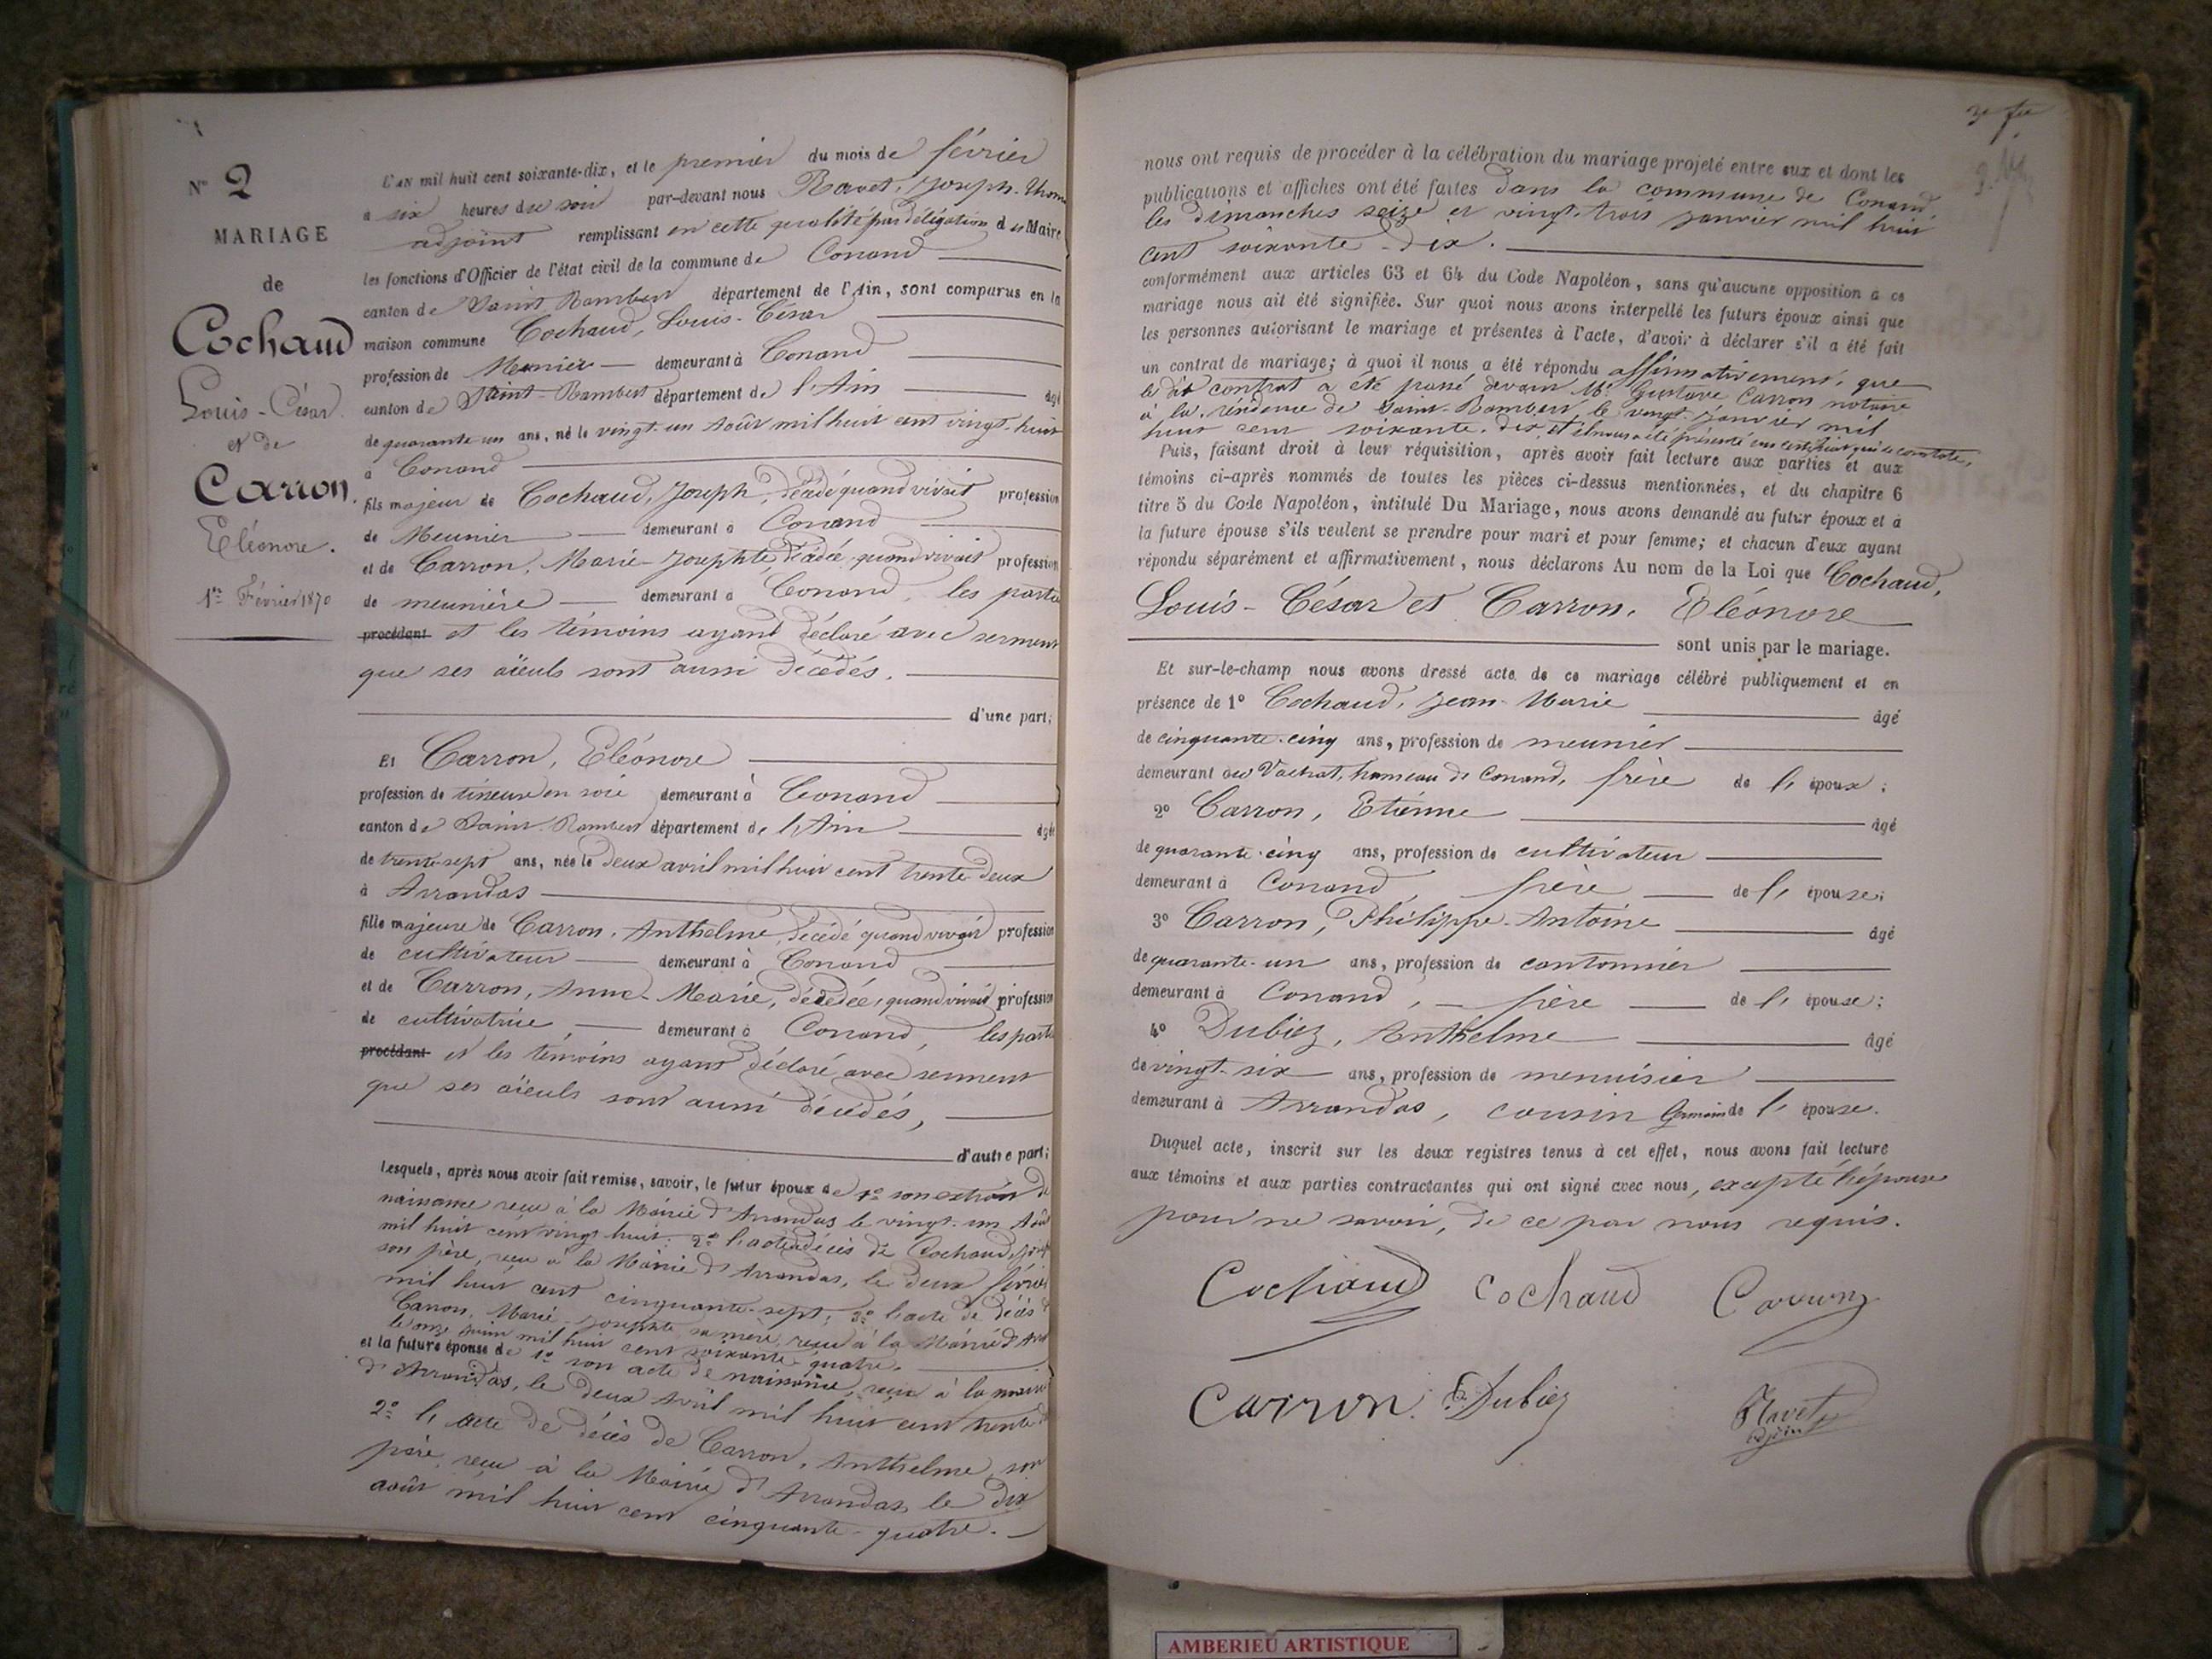 N° 2
MARIAGE
de
Cochaud
Louis-César.
et de
Carron.
Eléonore.
1er Février 1870
L'AN mil huit cent soixante-dix, et le premier du mois de février
à six heures du soir par-devant nous Ravet, Joseph-Thom
adjoint remplissant en cette qualité par délégation du Maire
les fonctions d'Officier de l'état civil de la commune de Conand
canton de Saint Rambert département de l'Ain, sont comparus en la
maison commune Cochaud, Louis-César
profession de Meunier demeurant à Conand
canton de Saint-Rambert département de l'Ain âgé
de quarante un ans, né le vingt-un Août mil huit cent vingt-huit
à Conand
fils majeur de Cochaud, Joseph, décédé quand vivait profession
de Meunier demeurant à Conand
et de Carron, Marie-Josephte, décédée quand vivait profession
de meunière demeurant à Conand, les parties
procédant et les témoins ayant déclaré avec serment
que ses aïeuls sont aussi décédés.
d'une part;
Et Carron, Eléonore
profession de tisseuse en soie demeurant à Conand
canton de Saint-Rambert département de l'Ain âgée
de trente-sept ans, née le deux avril mil huit cent trente deux
à Arrandas
fille majeure de Carron, Anthelme, décédé quand vivait profession
de cultivateur demeurant à Conand
et de Carron, Anne-Marie, décédée, quand vivait profession
de cultivatrice, demeurant à Conand, les parties
procédant et les témoins ayant déclaré avec serment
que ses aïeuls sont aussi décédés,
d'autre part;
Lesquels, après nous avoir fait remise, savoir, le futur époux de 1° son extrait de
naissance reçu à la Mairie d'Arrandas le vingt-un Août
mil huit cent vingt huit; 2° l'acte de décès de Cochaud, Joseph
son père, reçu à la Mairie d'Arrandas, le deux février
mil huit cent cinquante-sept; 3° l'acte de décès de
Carron, Marie-Josephte sa mère, reçu à la Mairie d'Arr
le onze juin mil huit cent soixante-quatre.
et la future épouse de 1° son acte de naissance, reçu à la mairie
d'Arrandas, le deux Avril mil huit cent trente d
2° l'acte de décès de Carron, Anthelme, son
père, reçu à la Mairie d'Arrandas, le dix
août mil huit cent cinquante-quatre.
nous ont requis de procéder à la célébration du mariage projeté entre eux et dont les
publications et affiches ont été faites dans la commune de Conand,
les dimanches seize et vingt-trois janvier mil huit
cent soixante-dix.
conformément aux articles 63 et 64 du Code Napoléon, sans qu'aucune opposition à ce
mariage nous ait été signifiée. Sur quoi nous avons interpellé les futurs époux ainsi que
les personnes autorisant le mariage et présentes à l'acte, d'avoir à déclarer s'il a été fait
un contrat de mariage; à quoi il nous a été répondu affirmativement, que
le dit contrat a été passé devant Me Gustave Carron notaire
à la résidence de Saint-Rambert, le vingt janvier mil
huit cent soixante-dix, et il nous a été présenté un certificat qui le constate,
Puis, faisant droit à leur réquisition, après avoir fait lecture aux parties et aux
témoins ci-après nommés de toutes les pièces ci-dessus mentionnées, et du chapitre 6
titre 5 du Code Napoléon, intitulé Du Mariage, nous avons demandé au futur époux et à
la future épouse s'ils veulent se prendre pour mari et pour femme; et chacun d'eux ayant
répondu séparément et affirmativement, nous déclarons Au nom de la Loi que Cochaud,
Louis-César et Carron, Eléonore
sont unis par le mariage.
Et sur-le-champ nous avons dressé acte de ce mariage célébré publiquement et en
présence de 1° Cochaud, Jean-Marie âgé
de cinquante-cinq ans, profession de meunier
demeurant au Vachat, hameau de Conand, frère de l'époux;
2° Carron, Etienne âgé
de quarante-cinq ans, profession de cultivateur
demeurant à Conand, frère de l'épouse;
3° Carron, Philippe-Antoine âgé
de quarante-un ans, profession de cantonnier
demeurant à Conand, frère de l'épouse;
4° Dubiez, Anthelme âgé
de vingt-six ans, profession de menuisier
demeurant à Arrandas, cousin Germain de l'épouse.
Duquel acte, inscrit sur les deux registres tenus à cet effet, nous avons fait lecture
aux témoins et aux parties contractantes qui ont signé avec nous, excepté l'épouse
pour ne savoir, de ce par nous requis.
Cochaud Cochaud Carron
Carron. Dubiez Ravet
adjoint
AMBERIEU ARTISTIQUE